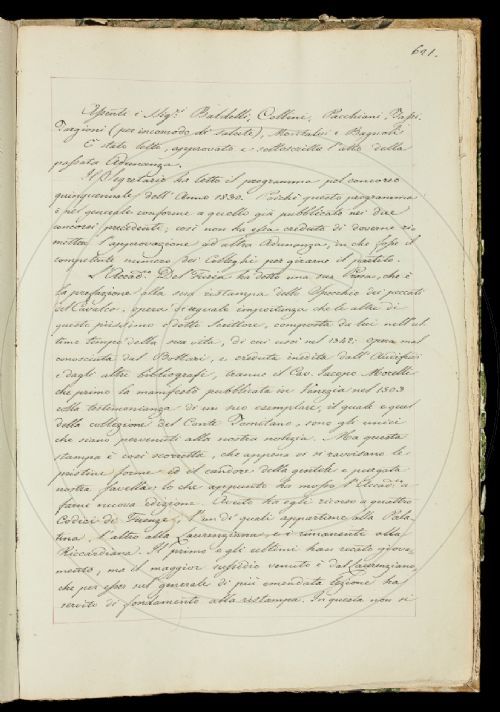 641.
Assenti i Sigg.ri Baldelli, Collini, Pacchiani,
Targioni (per incomodo di salute), Montalvi e Bagnoli.
È stato letto, approvato e sottoscritto l'atto della
passata Adunanza.
Il Segretario ha letto il programma pel concorso
quinquennale dell'Anno 1830. Poichè questo programma
è pel generale conforme a quello già pubblicato nei due
concorsi precedenti, così non ha esso creduto di doverne ri-
mettere l'approvazione ad altra Adunanza, in che fosse il
competente numero dei Colleghi per girarne il partito.
L'Accad.co Del Furia ha detto una sua Prosa, che è
la prefazione alla sua ristampa dello Specchio dei peccati
del Cavalca, opera d'eguale importanza che le altre di
questo piissimo e dotto Scrittore, composta da lui nell'ul-
timo tempo della sua vita, di cui uscì nel 1342: opera non
conosciuta dal Bottari, e creduta inedita dall'
e dagli altri bibliografi, tranne il Cav. Jacopo Morelli
che primo la manifestò pubblicata in Venezia nel 1503
colla testimonianza di un suo esemplare, il quale e quel
della collezione del Conte Tomitano, sono gli unici
che siano pervenuti alla nostra notizia. Ma questa
stampa è così scorretta, che appena vi si ravvisano le
pristine forme ed il candore della gentile e purgata
nostra favella: lo che appunto ha mosso l'Accad.co a
farne nuova edizione. Avuto ha egli ricorso a quattro
Codici di Firenze, l'un di quali appartiene alla Pala-
tina, l'altro alla Laurenziana, e i rimanenti alla
Riccardiana. Il primo e gli ultimi han recato giova-
mento, ma il maggior sussidio venuto è dal Laurenziano,
che per esser nel generale di più emendata lezione ha
servito di fondamento alla ristampa. In questa non si